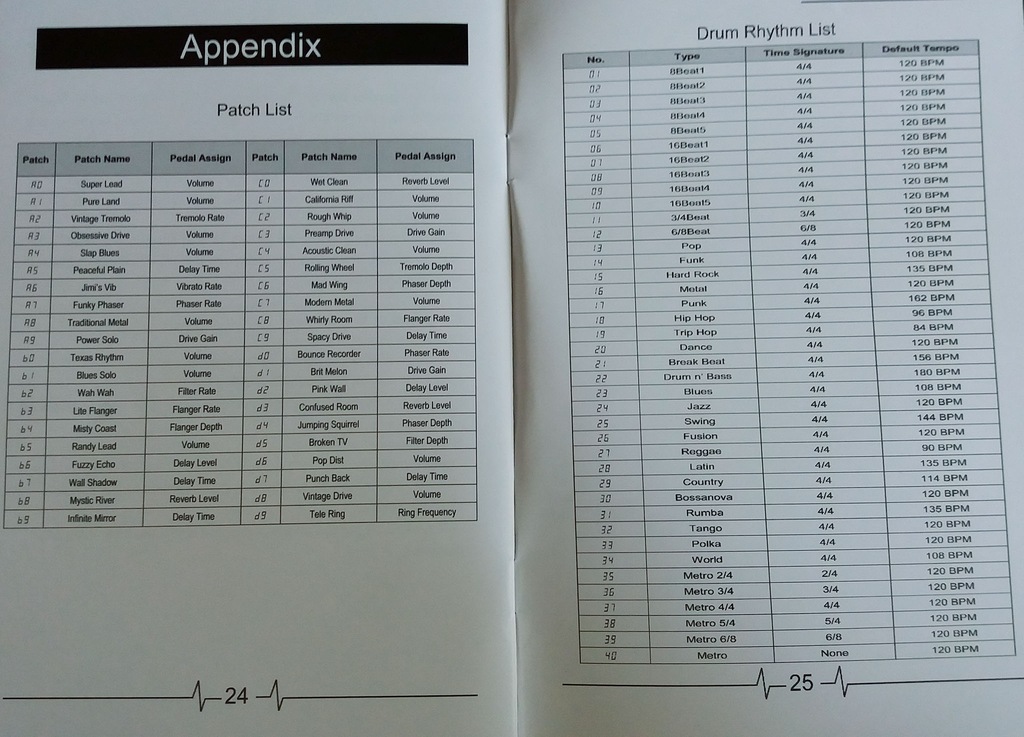 Appendix
Patch List
Patch Patch Name Pedal Assign Patch Patch Name Pedal Assign
A0 Super Lead Volume C0 Wet Clean Reverb Level
A1 Pure Land Volume C1 California Riff Volume
A2 Vintage Tremolo Tremolo Rate C2 Rough Whip Volume
A3 Obsessive Drive Volume C3 Preamp Drive Drive Gain
A4 Slap Blues Volume C4 Acoustic Clean Volume
A5 Peaceful Plain Delay Time C5 Rolling Wheel Tremolo Depth
A6 Jimi's Vib Vibrato Rate C6 Mad Wing Phaser Depth
A7 Funky Phaser Phaser Rate C7 Modern Metal Volume
A8 Traditional Metal Volume C8 Whirly Room Flanger Rate
A9 Power Solo Drive Gain C9 Spacy Drive Delay Time
b0 Texas Rhythm Volume d0 Bounce Recorder Phaser Rate
b1 Blues Solo Volume d1 Brit Melon Drive Gain
b2 Wah Wah Filter Rate d2 Pink Wall Delay Level
b3 Lite Flanger Flanger Rate d3 Confused Room Reverb Level
b4 Misty Coast Flanger Depth d4 Jumping Squirrel Phaser Depth
b5 Randy Lead Volume d5 Broken TV Filter Depth
b6 Fuzzy Echo Delay Level d6 Pop Dist Volume
b7 Wall Shadow Delay Time d7 Punch Back Delay Time
b8 Mystic River Reverb Level d8 Vintage Drive Volume
b9 Infinite Mirror Delay Time d9 Tele Ring Ring Frequency
24
Drum Rhythm List
No. Type Time Signature Default Tempo
01 8Beat1 4/4 120 BPM
02 8Beat2 4/4 120 BPM
03 8Beat3 4/4 120 BPM
04 8Beat4 4/4 120 BPM
05 8Beat5 4/4 120 BPM
06 16Beat1 4/4 120 BPM
07 16Beat2 4/4 120 BPM
08 16Beat3 4/4 120 BPM
09 16Beat4 4/4 120 BPM
10 16Beat5 4/4 120 BPM
11 3/4Beat 3/4 120 BPM
12 6/8Beat 6/8 120 BPM
13 Pop 4/4 120 BPM
14 Funk 4/4 108 BPM
15 Hard Rock 4/4 135 BPM
16 Metal 4/4 120 BPM
17 Punk 4/4 162 BPM
18 Hip Hop 4/4 96 BPM
19 Trip Hop 4/4 84 BPM
20 Dance 4/4 120 BPM
21 Break Beat 4/4 156 BPM
22 Drum n' Bass 4/4 180 BPM
23 Blues 4/4 108 BPM
24 Jazz 4/4 120 BPM
25 Swing 4/4 144 BPM
26 Fusion 4/4 120 BPM
27 Reggae 4/4 90 BPM
28 Latin 4/4 135 BPM
29 Country 4/4 114 BPM
30 Bossanova 4/4 120 BPM
31 Rumba 4/4 135 BPM
32 Tango 4/4 120 BPM
33 Polka 4/4 120 BPM
34 World 4/4 108 BPM
35 Metro 2/4 2/4 120 BPM
36 Metro 3/4 3/4 120 BPM
37 Metro 4/4 4/4 120 BPM
38 Metro 5/4 5/4 120 BPM
39 Metro 6/8 6/8 120 BPM
40 Metro None 120 BPM
25